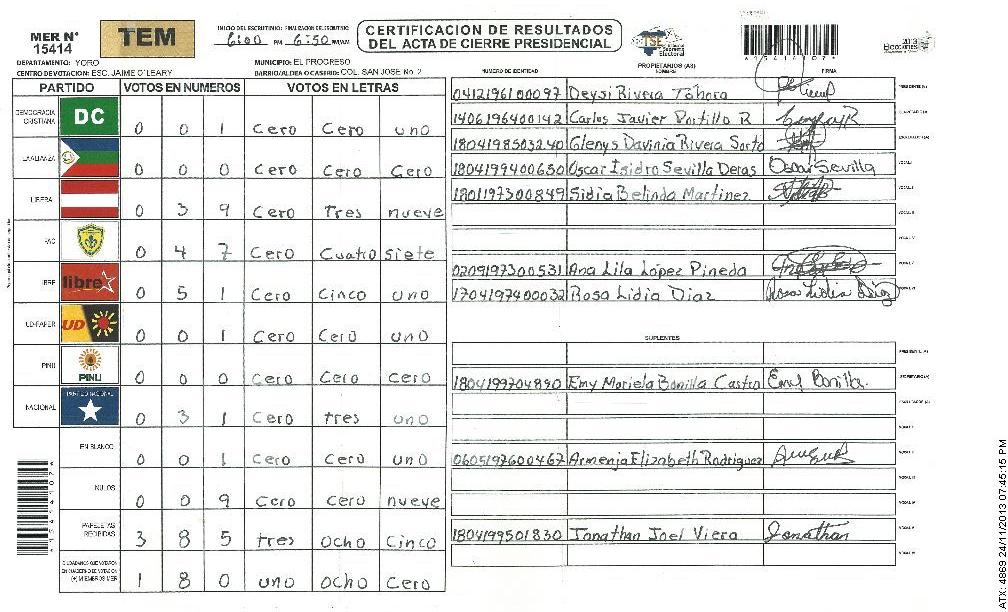 MER N°
15414
TEM
INICIO DEL ESCRUTINIO: FINALIZACION DEL ESCRUTINIO
6:00 PM 6:50 PM/AM
CERTIFICACION DE RESULTADOS
DEL ACTA DE CIERRE PRESIDENCIAL
TSE Tribunal Supremo Electoral
*1541410?*
2013
Elecciones
DEPARTAMENTO: YORO
MUNICIPIO: EL PROGRESO
CENTRO DE VOTACION: ESC. JAIME O'LEARY
BARRIO/ALDEA O CASERIO: COL. SAN JOSE No. 2
PARTIDO VOTOS EN NUMEROS VOTOS EN LETRAS
DEMOCRACIA CRISTIANA DC 0 0 1 Cero Cero uno
LA ALIANZA 0 0 0 Cero Cero Cero
LIBERAL 0 3 9 Cero tres nueve
PAC 0 4 7 Cero Cuatro siete
LIBRE libre 0 5 1 Cero Cinco uno
UD-FAPER UD 0 0 1 Cero Cero uno
PINU PINU 0 0 0 Cero Cero cero
NACIONAL PARTIDO NACIONAL 0 3 1 Cero tres uno
EN BLANCO 0 0 1 Cero Cero uno
NULOS 0 0 9 Cero cero nueve
PAPELETAS RECIBIDAS 3 8 5 tres ocho Cinco
CIUDADANOS QUE VOTARON EN CUADERNO DE VOTACION (+) MIEMBROS MER 1 8 0 uno ocho Cero
PROPIETARIOS (AS)
NUMERO DE IDENTIDAD NOMBRE FIRMA
0412196100097 Deysi Rivera Tabora PRESIDENTE (A)
1406196400142 Carlos Javier Portillo R SECRETARIO (A)
1804198503240 Glenys Davinia Rivera Sorto ESCRUTADOR (A)
1804199400630 Oscar Isidro Sevilla Deras Oscar Sevilla VOCAL I
1801197300849 Sidia Belinda Martinez VOCAL II
VOCAL III
VOCAL IV
0209197300531 Ana Lila López Pineda VOCAL V
1704197400032 Rosa Lidia Diaz Rosa Lidia Diaz VOCAL VI
SUPLENTES
PRESIDENTE (A)
1804199704890 Emy Mariela Bonilla Castro Emy Bonilla. SECRETARIO (A)
ESCRUTADOR (A)
VOCAL I
0605197600467 Armenja Elizabeth Rodriguez VOCAL II
VOCAL III
VOCAL IV
1804199501830 Jonathan Joel Viera Jonathan VOCAL V
VOCAL VI
ATX: 4869 24/11/2013 07:45:15 PM